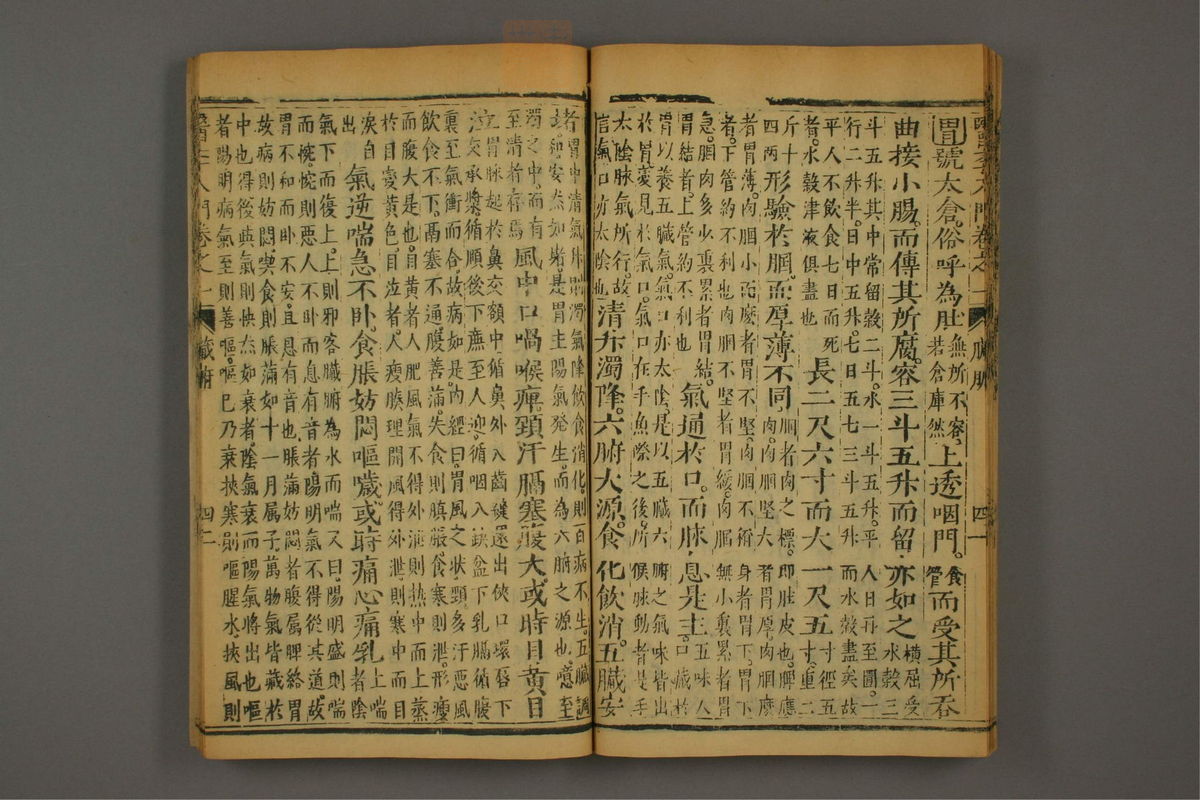 醫學入門卷之一 臟腑 四一
胃號太倉。俗呼為肚
無所不容。
若倉庫然
上透咽門。
食
管
而受其所吞
曲接小腸。而傳其所腐。容三斗五升而留。亦如之
橫屈受
水穀三
斗五升其中常留穀二斗。水一斗五升。平人日再至圊。一
行二升半。日中五升。七日五七三斗五升而水穀盡矣故
平人不飲食七日而死
者。水穀津液俱盡也
長二尺六寸而大一尺五
寸徑五
寸。重二
斤十
四兩
形驗於䐃。而厚薄不同。
䐃者肉之標。即肚皮也。脾應
肉。肉䐃堅大者胃厚肉䐃麼
者胃薄。肉䐃小而麼者胃不堅。肉䐃不稱身者胃下。胃下
者。下管約不利也肉䐃不堅者胃緩。肉䐃無小裹累者胃
急。䐃肉多少裹累者胃結。
胃結者。上管約不利也
氣通於口。而脉息是主。
五味入
口藏於
胃以養五臟氣。氣口亦太陰。是以五臟六腑之氣味皆出
於胃。變見於氣口。氣口在手魚際之後。所候脉動者是手
太陰脉氣所行。故
言氣口亦太陰也
清升濁降。六腑大源。食化飲消。五臟安
堵。
胃中清氣升則濁氣降飲食消化。則百病不生。五臟調
迎安然如堵。是胃主陽氣發生。而為六腑之源也。噫至
濁之中。而有
至清者存焉
風中口喎喉痺頸汗膈塞腹大或時目黃目
泣
胃脉起於鼻交額中循鼻外入齒縫還出俠口環唇下
交承漿。循頤後下廉至人迎。循咽入缺盆下乳膈循腹
裏至氣衝而合。故病如是。內經曰。胃風之狀。頸多汗惡風
飲食不下。膈塞不通腹善滿。失食則䐜脹食寒則泄。形瘦
而腹大是也。目黃者人肥風氣不得外泄則熱中而上蒸
於目變黃色。目泣者。人瘦腠理開風得外泄。則寒中而目
淚自
出
氣逆喘急不卧。食脹妨悶嘔噦或時痛心痛乳
上喘
者陰
氣下而復上。上則邪客臟腑為水而喘又曰。陽明盛則喘
而惋。惋則惡人不卧而息有音者陽明氣不得從其道。故
胃不和而卧不安。且息有音也。脹滿妨悶者腹属脾絡胃
故病則妨悶喫食則脹滿如十一月属子。萬物氣皆藏於
中也。得後與氣則快然如衰者。陰氣衰而陽氣將出也嘔
者陽明病氣至則善嘔。嘔已乃衰挾寒則嘔腥水。挾風則
醫學入門卷之一 臟腑 四二